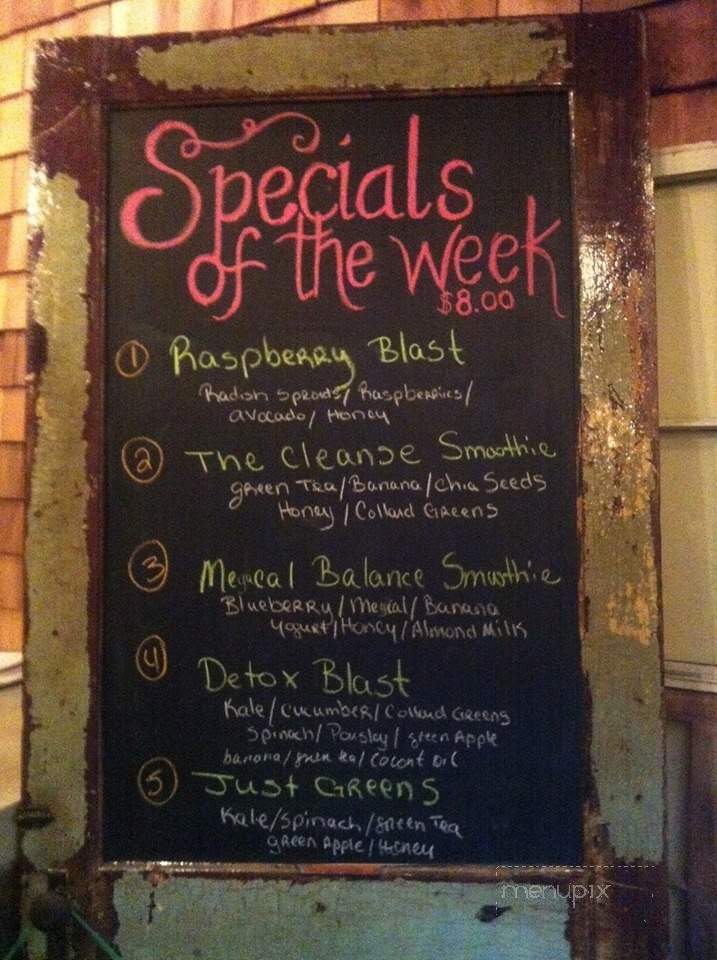 Specials
of the week
$8.00
1 Raspberry Blast
Radish Sprouts/Raspberries/
avocado/Honey
2 The Cleanse Smoothie
green Tea/Banana/Chia Seeds
Honey/Collard Greens
3 Megacal Balance Smoothie
Blueberry/Megcal/Banana
Yogurt/Honey/Almond Milk
4
Detox Blast
Kale/Cucumber/Collard Greens
Spinach/Parsley/green Apple
banana/green tea/Coconut Oil
5 Just Greens
Kale/Spinach/green Tea
green Apple/Honey
menupix